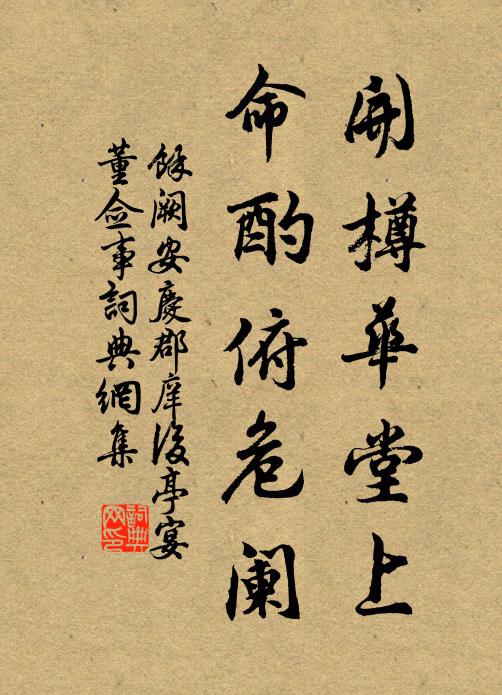 開樽華堂上
命酌俯危闌
餘闕安慶郡庠後亭宴
董僉事詞典網集
詞典網印